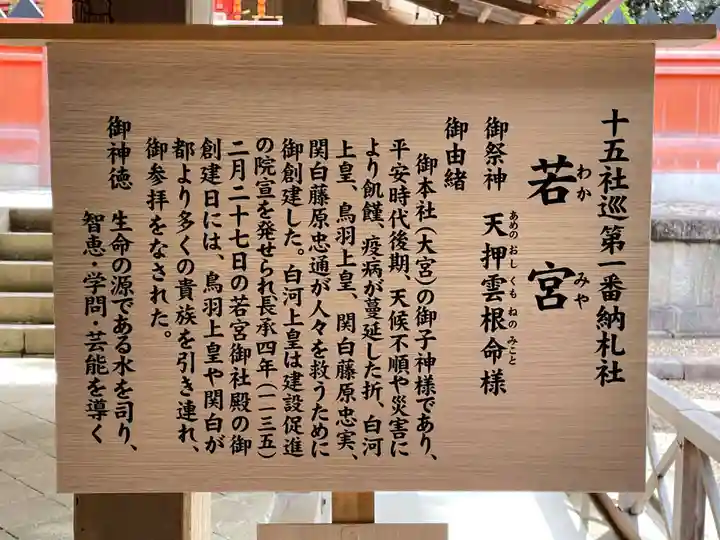 十五社巡第一番納札社
若宮
わか みや
御祭神 天押雲根命様
あめの おし くも ねの みこと
御由緒
御本社（大宮）の御子神様であり、
平安時代後期、天候不順や災害に
より飢饉、疫病が蔓延した折、白河
上皇、鳥羽上皇、関白藤原忠実、
関白藤原忠通が人々を救うために
御創建した。白河上皇は建設促進
の院宣を発せられ長承四年（一一三五）
二月二十七日の若宮御社殿の御
創建日には、鳥羽上皇や関白が
都より多くの貴族を引き連れ、
御参拝をなされた。
御神徳 生命の源である水を司り、
智恵・学問・芸能を導く